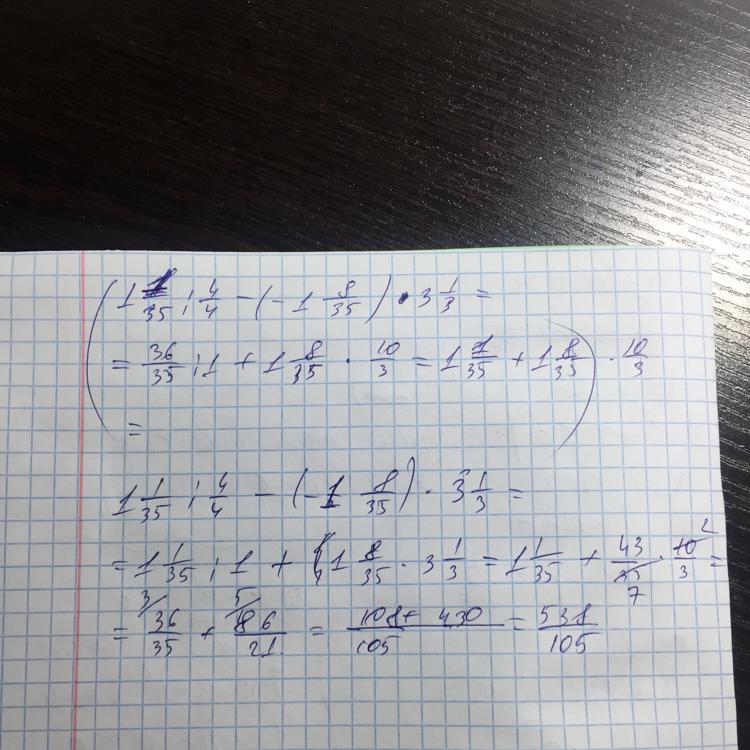 (1 1/35 : 4/4 - (-1 8/35) · 3 1/3 =
= 36/35 : 1 + 1 8/35 · 10/3 = 1 1/35 + 1 8/35) · 10/3
=
1 1/35 : 4/4 - (-1 8/35) · 3 1/3 =
= 1 1/35 : 1 + 1 8/35 · 3 1/3 = 1 1/35 + 43/35 7 · 10/3 2 =
= 3/ 36/35 + 5/ 86/21 = 108+430/105 = 538/105